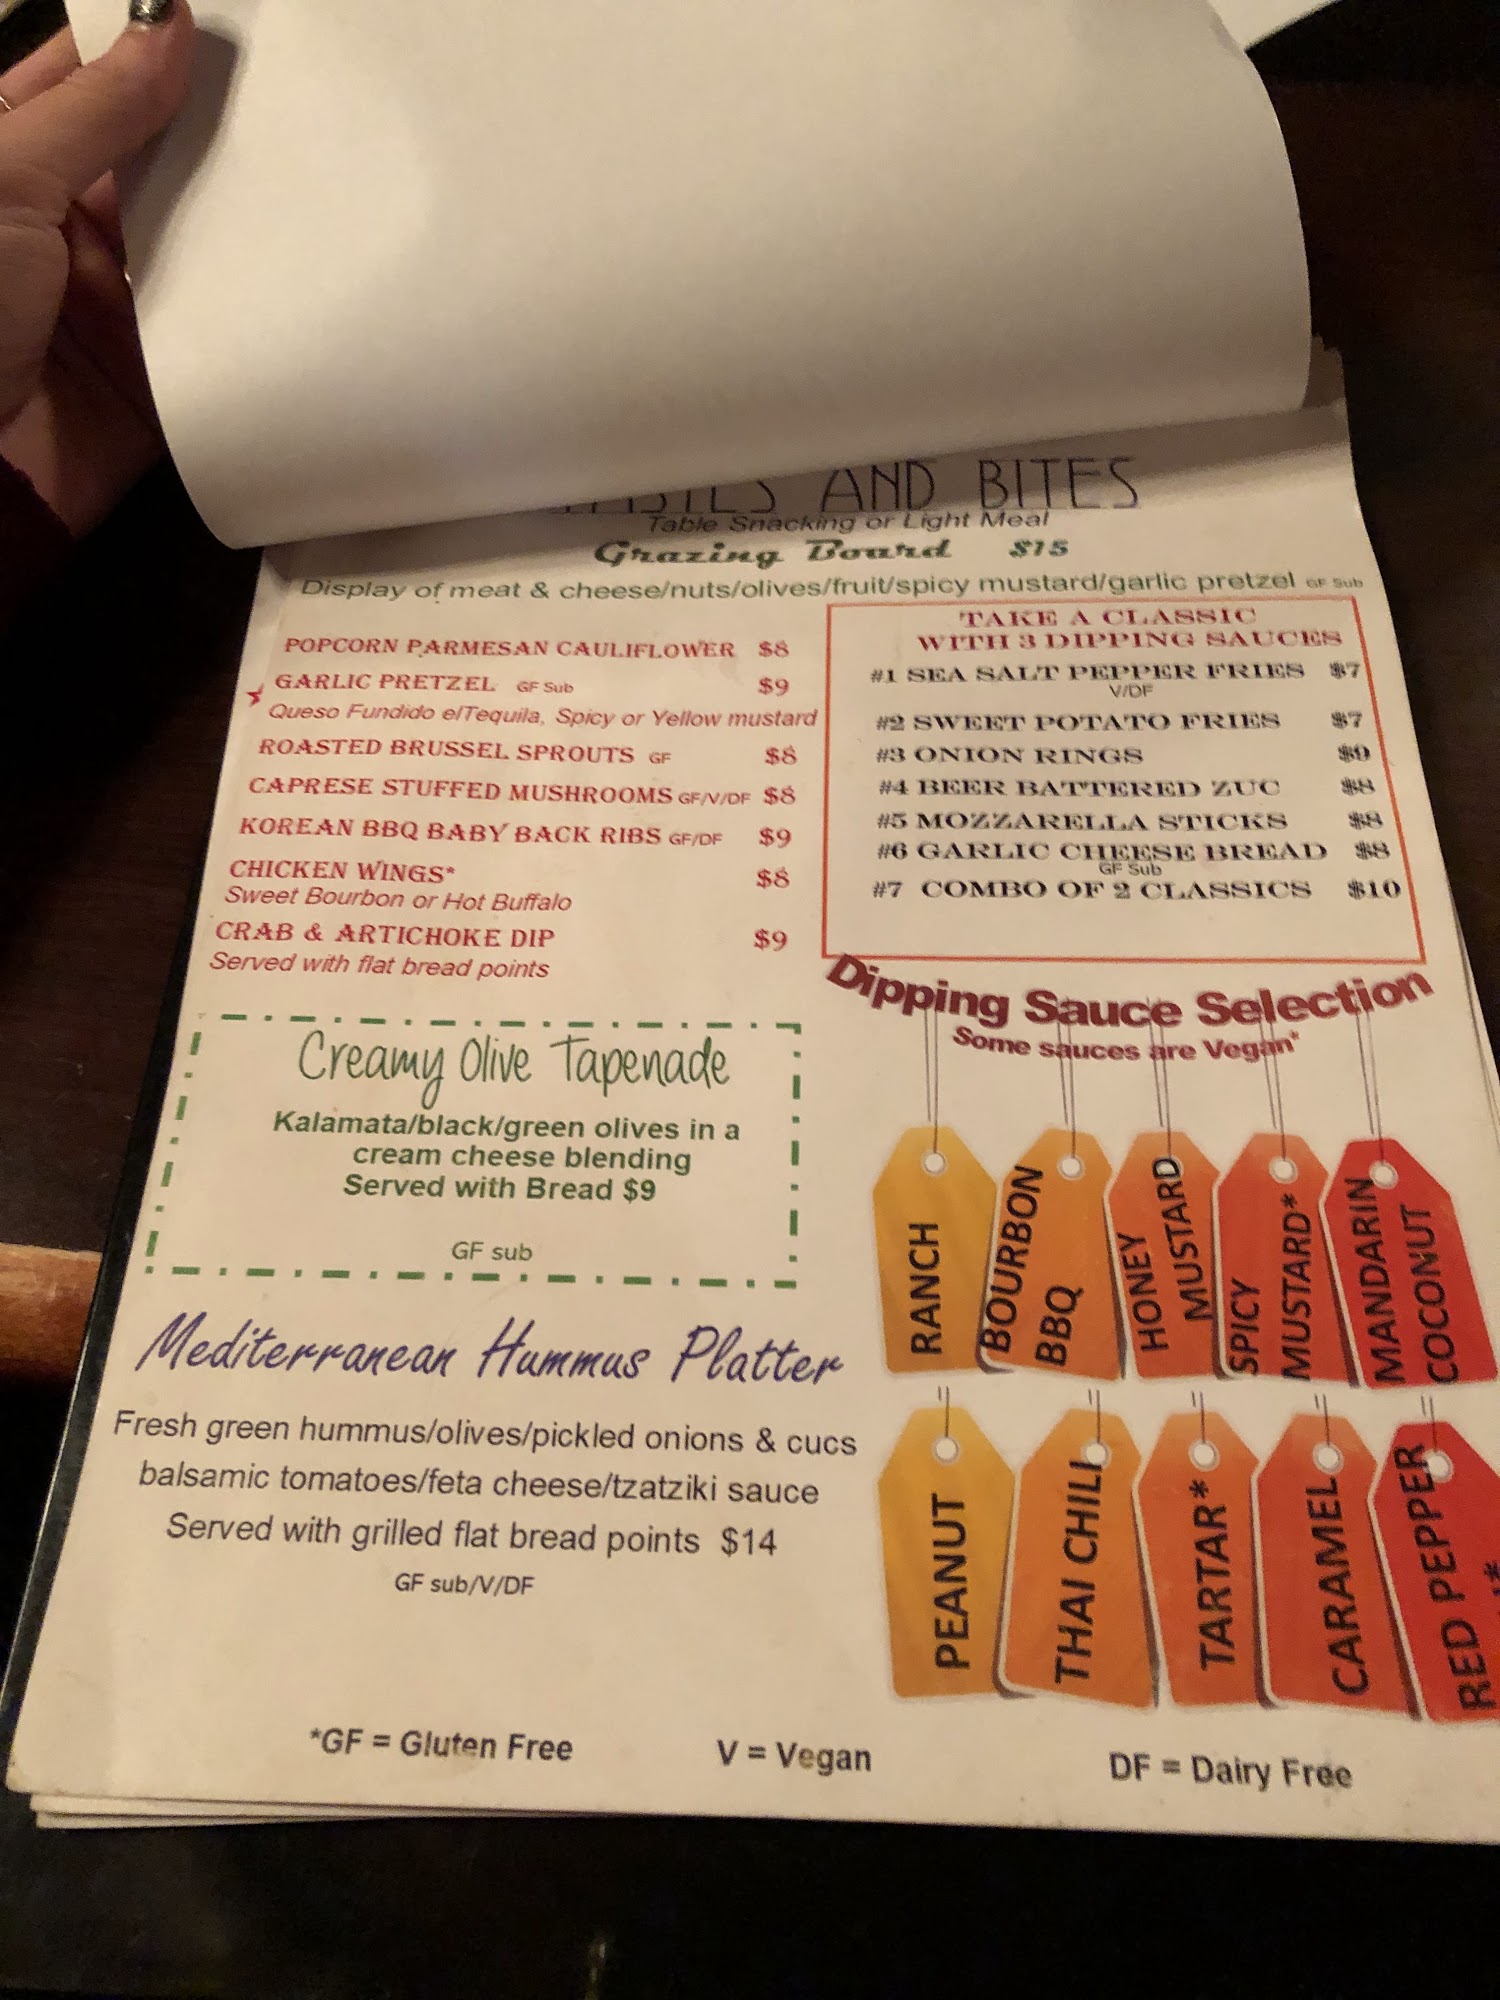 AND BITES
Table Snacking or Light Meal
Grazing Board $15
Display of meat & cheese/nuts/olives/fruit/spicy mustard/garlic pretzel GF Sub
POPCORN PARMESAN CAULIFLOWER $8
GARLIC PRETZEL GF Sub $9
Queso Fundido elTequila, Spicy or Yellow mustard
ROASTED BRUSSEL SPROUTS GF $8
CAPRESE STUFFED MUSHROOMS GF/V/DF $8
KOREAN BBQ BABY BACK RIBS GF/DF $9
CHICKEN WINGS* $8
Sweet Bourbon or Hot Buffalo
CRAB & ARTICHOKE DIP $9
Served with flat bread points
TAKE A CLASSIC
WITH 3 DIPPING SAUCES
#1 SEA SALT PEPPER FRIES $7
V/DF
#2 SWEET POTATO FRIES $7
#3 ONION RINGS $9
#4 BEER BATTERED ZUC $8
#5 MOZZARELLA STICKS $8
#6 GARLIC CHEESE BREAD $8
GF Sub
#7 COMBO OF 2 CLASSICS $10
Creamy Olive Tapenade
Kalamata/black/green olives in a
cream cheese blending
Served with Bread $9
GF sub
Mediterranean Hummus Platter
Fresh green hummus/olives/pickled onions & cucs
balsamic tomatoes/feta cheese/tzatziki sauce
Served with grilled flat bread points $14
GF sub/V/DF
Dipping Sauce Selection
Some sauces are Vegan*
RANCH
BOURBON
BBQ
HONEY
MUSTARD
SPICY
MUSTARD*
MANDARIN
COCONUT
PEANUT
THAI CHILI
TARTAR*
CARAMEL
RED PEPPER
*GF = Gluten Free V = Vegan DF = Dairy Free